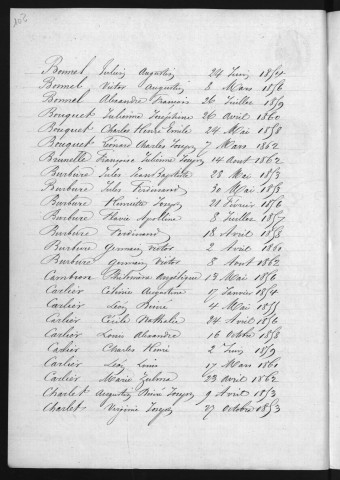 Bonnel Julien Augustin 24 Juin 1854
Bonnel Victor Augustin 8 Mars 1856
Bonnel Alexandre François 26 Juillet 1859
Bouquet Julienne Joséphine 26 avril 1860
Bouquet Charles Henri Emile 24 Mai 1858
Bouquet Léonard Charles Joseph 7 Mars 1862
Brunelle Françoise Julienne Joseph 14 Aout 1862
Burbure Jules Jean Baptiste 28 Mai 1853
Burbure Jules Ferdinand 30 Mai 1853
Burbure Henriette Joseph 28 Février 1856
Burbure Flavie Apolline 8 Juillet 1857
Burbure Ferdinand 18 Avril 1858
Burbure Germain Victor 2 Avril 1860
Burbure Germain Victor 8 Aout 1862
Cambron Philomène Angélique 13 Mai 1856
Carlier Célinie Augustine 17 Janvier 1854
Carlier Léon 4 Mai 1855
Carlier Cécile Nathalie 24 Avril 1856
Carlier Louis Alexandre 16 Octobre 1858
Carlier Charles Henri 2 Juin 1859
Carlier Léon Louis 17 Mars 1861
Carlier Marie Zulma 23 Avril 1862
Charlet Augustin Joseph 9 Avril 1853
Charlet Virginie Joseph 27 Octobre 1853